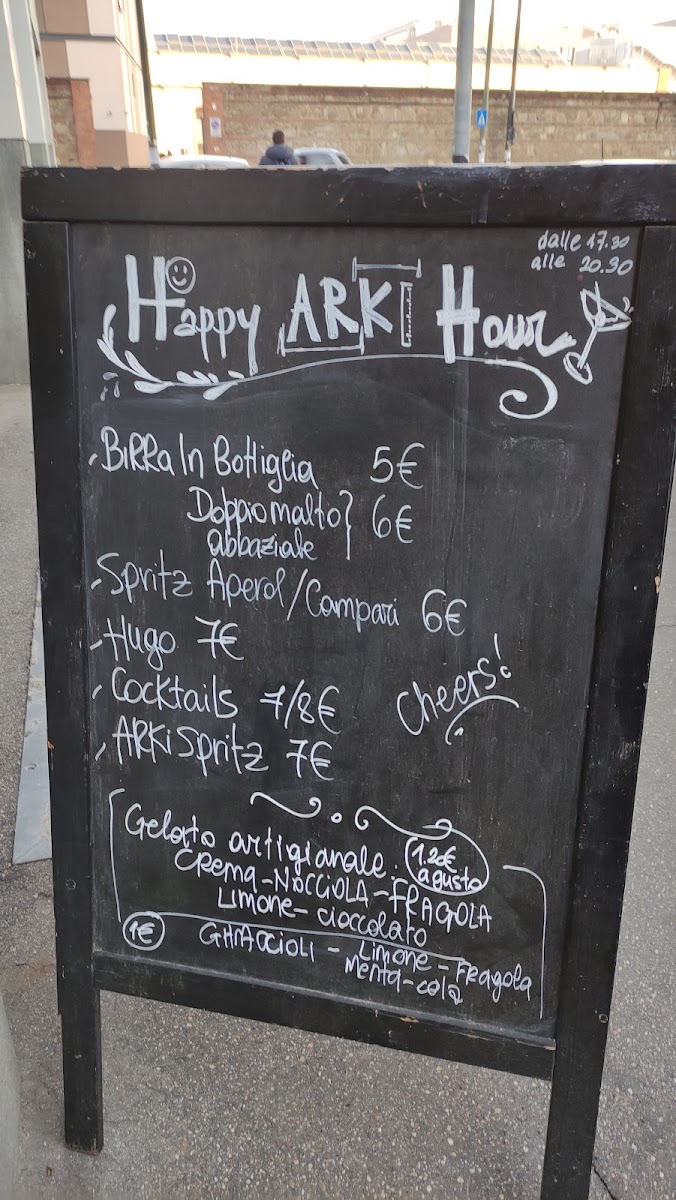 dalle 17.30
alle 20.30
Happy ARKI Hour
Birra In Bottiglia 5€
Doppio malto } 6€
abbaziale
Spritz Aperol/Campari 6€
Hugo 7€
Cocktails 7/8€
Cheers!
ARKiSpritz 7€
Gelato artigianale: 1.20€
a gusto
CREMA-NOCCIOLA-FRAGOLA
Limone-cioccolato
1€ GHIACCIOLI - Limone-Fragola
Menta-cola